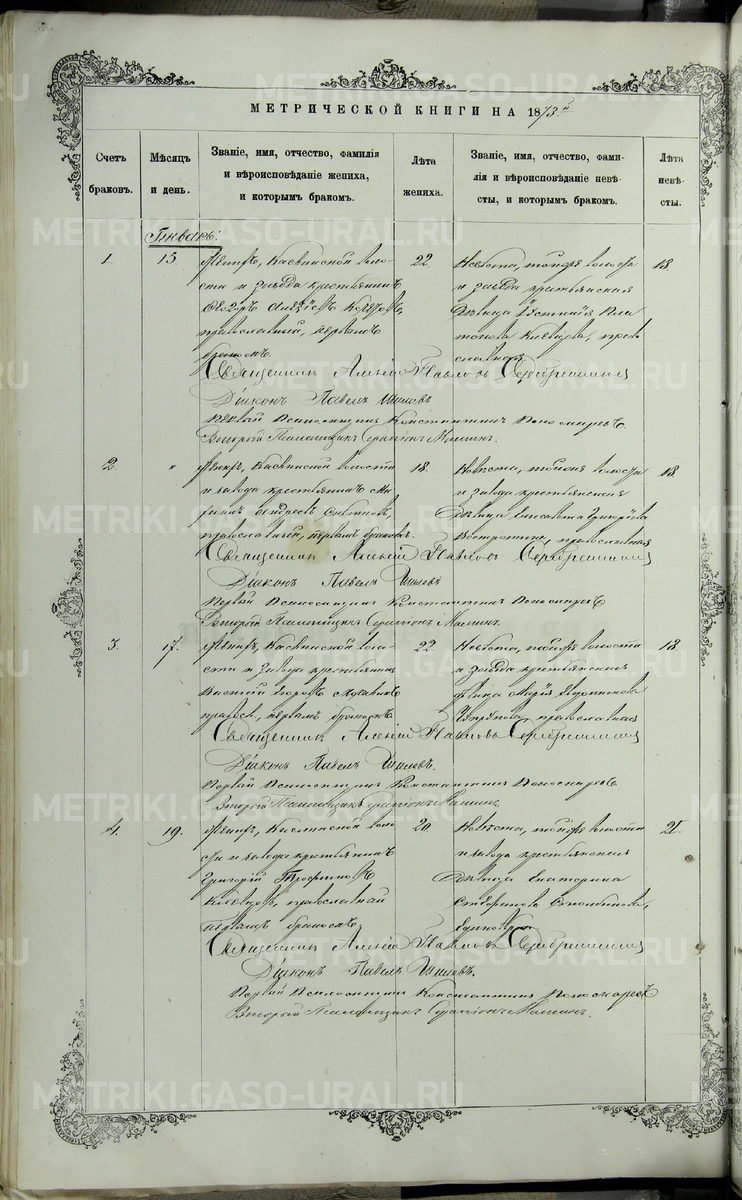 METRIKI.GASO-URAL.RU
МЕТРИЧЕСКОЙ КНИГИ НА 1873 г
Счетъ браковъ.
Мѣсяцъ и день.
Званіе, имя, отчество, фамилія
и вѣроисповѣданіе жениха,
и которымъ бракомъ.
Лѣта жениха.
Званіе, имя, отчество, фами-
лія и вѣроисповѣданіе невѣ-
сты, и которымъ бракомъ.
Лѣта невѣ-
сты.
Январь:
1.
15.
Женихъ, Каслинской воло-
сти и завода крестьянинъ
православный, первымъ
бракомъ.
22.
Невѣста, тойже волости
и завода крестьянская
дѣвица
Клевцова, прав
славная
18.
Священникъ Алексій Павловъ Серебрениковъ
Діаконъ Павелъ Шиловъ
Первый Псаломщикъ Константинъ Пономаревъ
Второй Псаломщикъ Серапіонъ Маминъ.
2.
"
Женихъ, Каслинской волости
и завода крестьянинъ
Андреевъ
православный, первымъ бракомъ.
18.
Невѣста, тойже волости
и завода крестьянская
дѣвица Елисавета Григорьева
православная
18.
Священникъ Алексій Павловъ Серебрениковъ
Діаконъ Павелъ Шиловъ
Первый Псаломщикъ Константинъ Пономаревъ
Второй Псаломщикъ Серапіонъ Маминъ.
3.
17.
Женихъ, Каслинской воло-
сти и завода крестьянинъ
правосл., первымъ бракомъ
22.
Невѣста, тойже волости
и завода крестьянская
дѣвица Марія
православная
18.
Священникъ Алексій Павловъ Серебрениковъ
Діаконъ Павелъ Шиловъ.
Первый Псаломщикъ Константинъ Пономаревъ
Второй Псаломщикъ Серапіонъ Маминъ.
4.
19.
Женихъ, Каслинской воло-
сти и завода крестьянинъ
Григорій Трофимовъ
Клевцовъ, православный
первымъ бракомъ.
20.
Невѣста, тойже волости
и завода крестьянская
дѣвица Екатерина
21.
Священникъ Алексій Павловъ Серебрениковъ
Діаконъ Павелъ Шиловъ.
Первый Псаломщикъ Константинъ Пономаревъ
Второй Псаломщикъ Серапіонъ Маминъ.